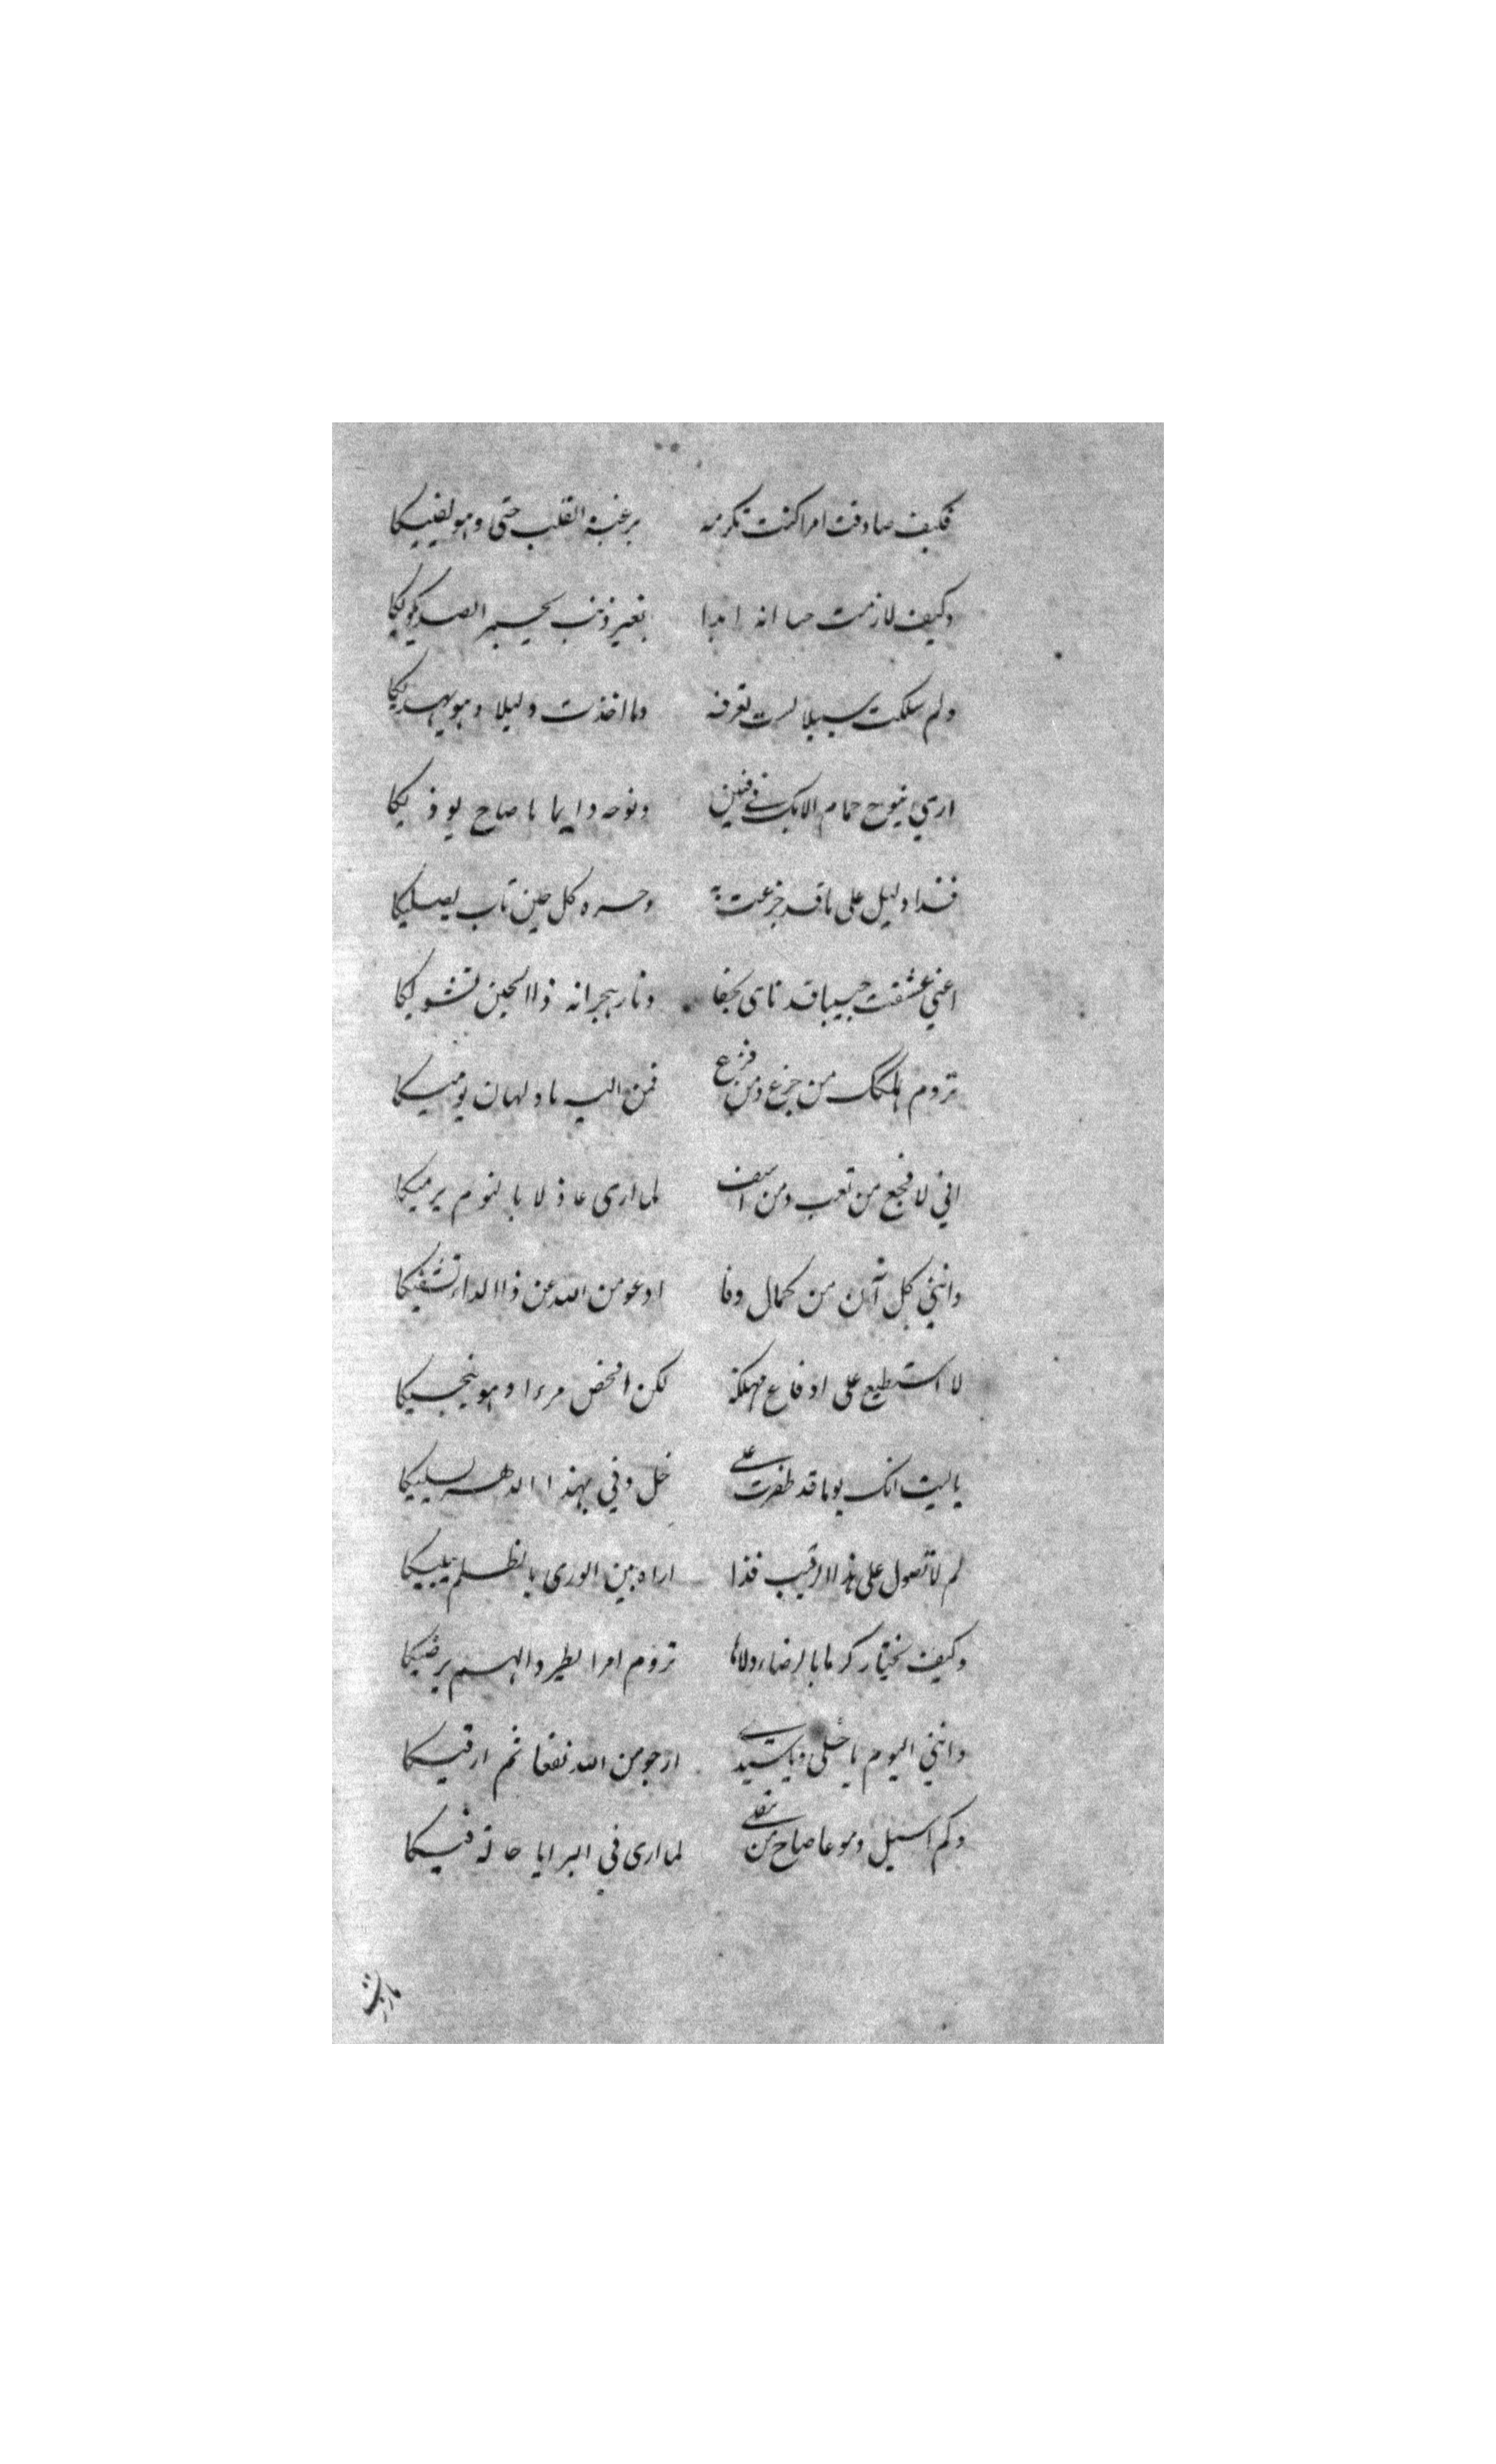 فكيف صادفت امرا كنت تكرهه برغبة القلب حتى وهو يفنيكا
وكيف لازمت ابدا بغير ذنب الصد يكويكا
ولم سلكت سبيلا لست تعرفه وما اخذت دليلا وهو يهديكا
ارى ينوح حمام الايك في فنن ونوحه دايما يا صاح يوذيكا
فذا دليل على ما قد جزعت به وحسره كل حين تاب يصليكا
اعني عشقت حبيبا قد ناى بجفا ونار هجرانه ذا الحين تشويكا
تروم هلكك من جزع ومن فزع فمن اليه يا ولهان يوميكا
اني لافجع من تعب ومن اسف لما ارى عاذلا بالنوم يرميكا
وانني كل آن من كمال وفا ادعو من الله عن ذا الداء تشفيكا
لا استطيع على ادفاع مهلكة لكن افحص مرءا وهو ينجيكا
يا ليت انك يوما قد ظفرت على خل وفي بهذا الدهر يسليكا
لم لا تصول على هذا الرقيب فذا اراه بين الورى بالظلم يبليكا
وكيف تختار كرها بالرضاء ولا تروم امرا يطير والهم يرضيكا
وانني اليوم يا خلي ويا سيدي ارجو من الله نفعا ثم ارقيكا
وكم اسيل دموعا صاح من مقلي لما ارى في البرايا حالة فيكا